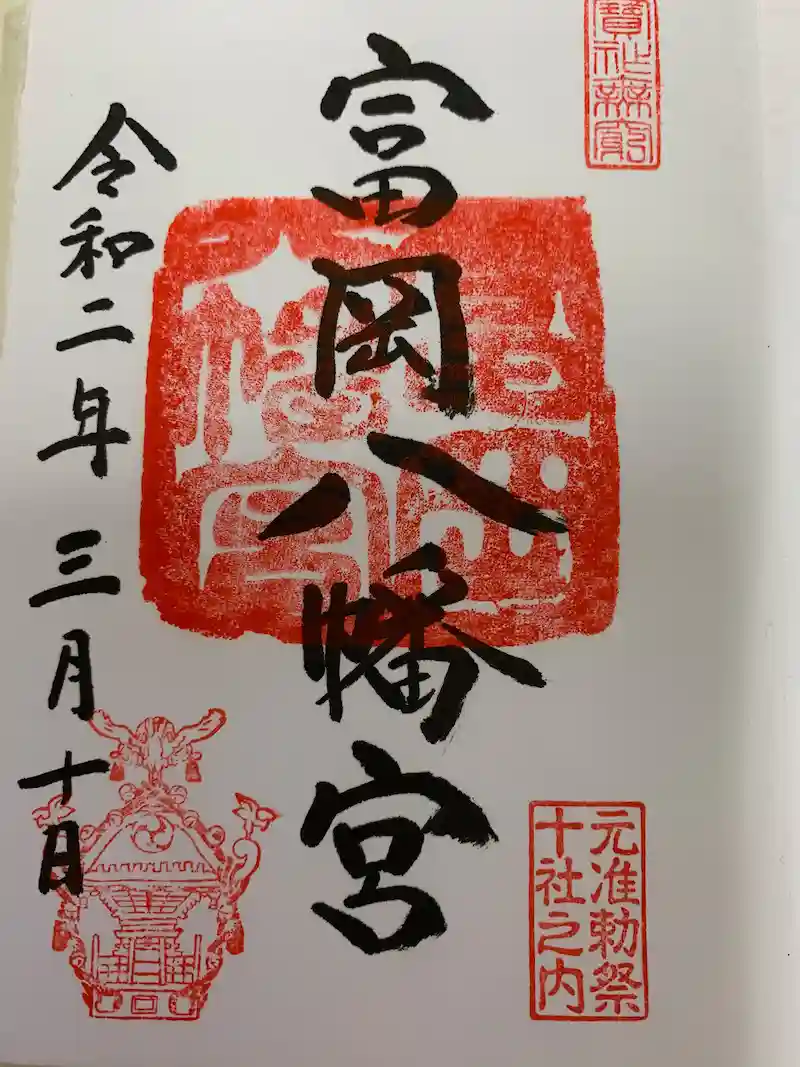 寶祚無窮
元准勅祭
十社之内
富岡八幡宮
令和二年三月十日